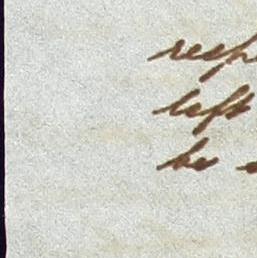 resp
left
be